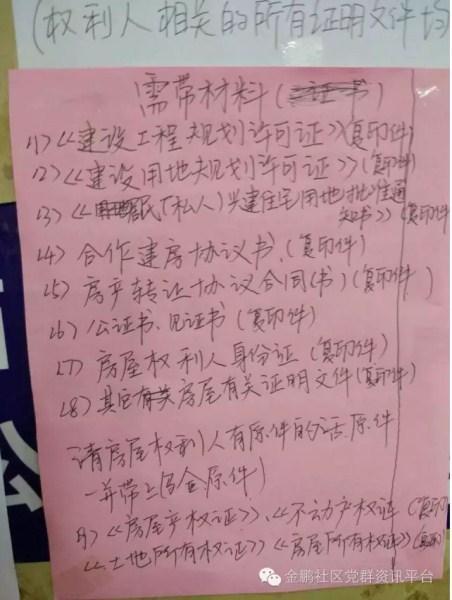 (权利人相关的所有证明文件均
需带材料(证书)
1>《建设工程规划许可证》(复印件)
2>《建设用地规划许可证》(复印件)
3>《居民(私人)兴建住宅用地批准通
知书》(复印件)
4>合作建房协议书.(复印件)
5>房产转让协议合同(书)(复印件)
6>公证书、见证书(复印件)
7>房屋权利人身份证(复印件)
8>其它有关房屋有关证明文件(复印件)
请房屋权利人有原件的话.原件
一并带上(验原件)
9>《房屋产权证》、《不动产权证(复印
《土地所有权证》《房屋所有权证》(复印
金鹏社区党群资讯平台